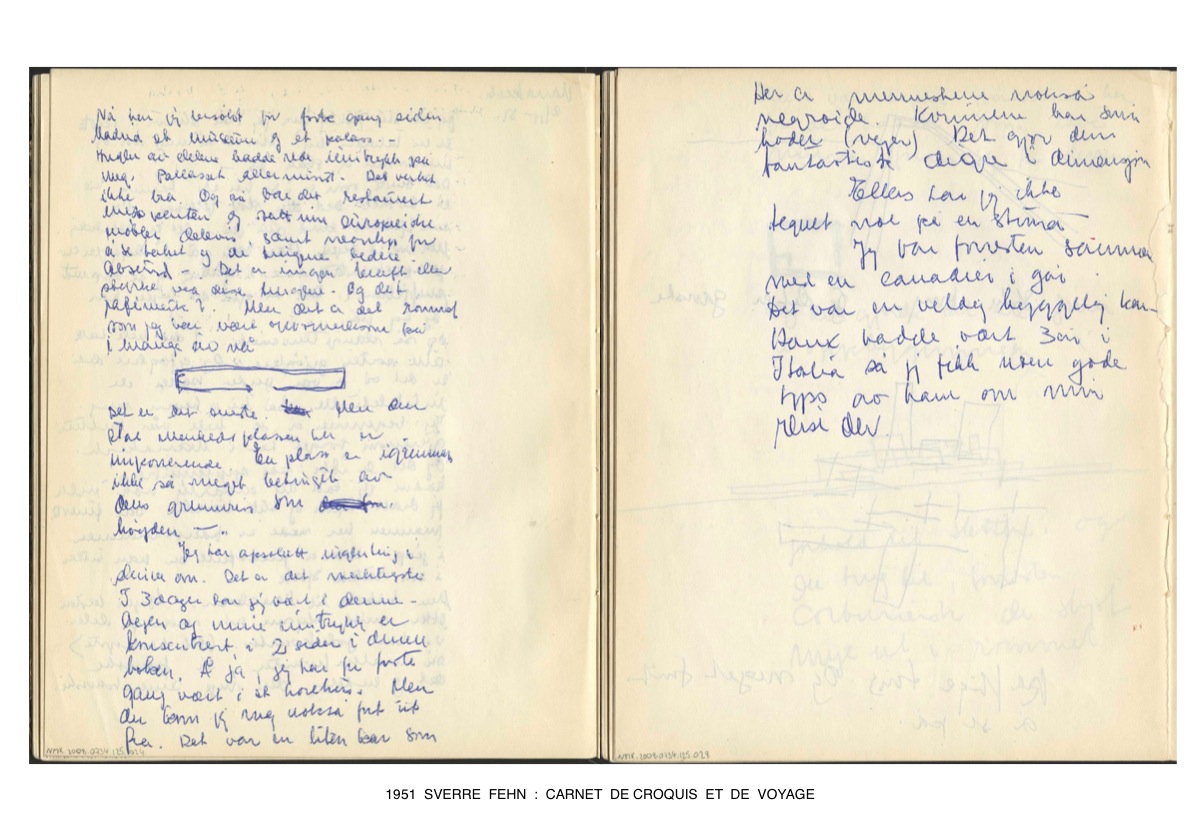 Nå har jeg besøkt for første gang siden
Madrid et museum og et palass –
Ingen av delene hadde inntrykk på
meg. Pallasset allerminst. Det virket
ikke bra. Og så var det restauert
og satt inn europeiske
møbler delevis, samt neonlys for
å se taket og de tingene bedre!
Absurd –. Det er ingen
Og det
Men det er det rommet
som jeg har vært oppmerksom på
i mange år nå
Det er det eneste. Men den
store markedsplassen her er
imponerende. En plass er igrunnen
ikke så meget betinget av
dens grenser som
høyden — "
Jeg har apsolutt
om. Det er det
I 3 dager har jeg vært i denne
byen og mine inntrykk er
konsentrert i 2 sider i denne
boken. Å ja, jeg har for første
gang vært i et horehus. Men
der kom jeg meg nokså fort ut
fra. Det var en liten bar som
NMK.2008.0734.125.024
Her er menneskene nokså
negroide. Kvinnene har små
hoder (vejer) Det gjør dem
fantastisk digre i dimensjon
Ellers har jeg ikke
tegnet noe på en stund
Jeg var forresten sammen
med en canadier i går
Det var en veldig hyggelig kar–
Hank hadde vært 3 år i
Italia så jeg fikk noen gode
typs av ham om min
reise der
NMK.2008.0734.125.024
1951 SVERRE FEHN : CARNET DE CROQUIS ET DE VOYAGE